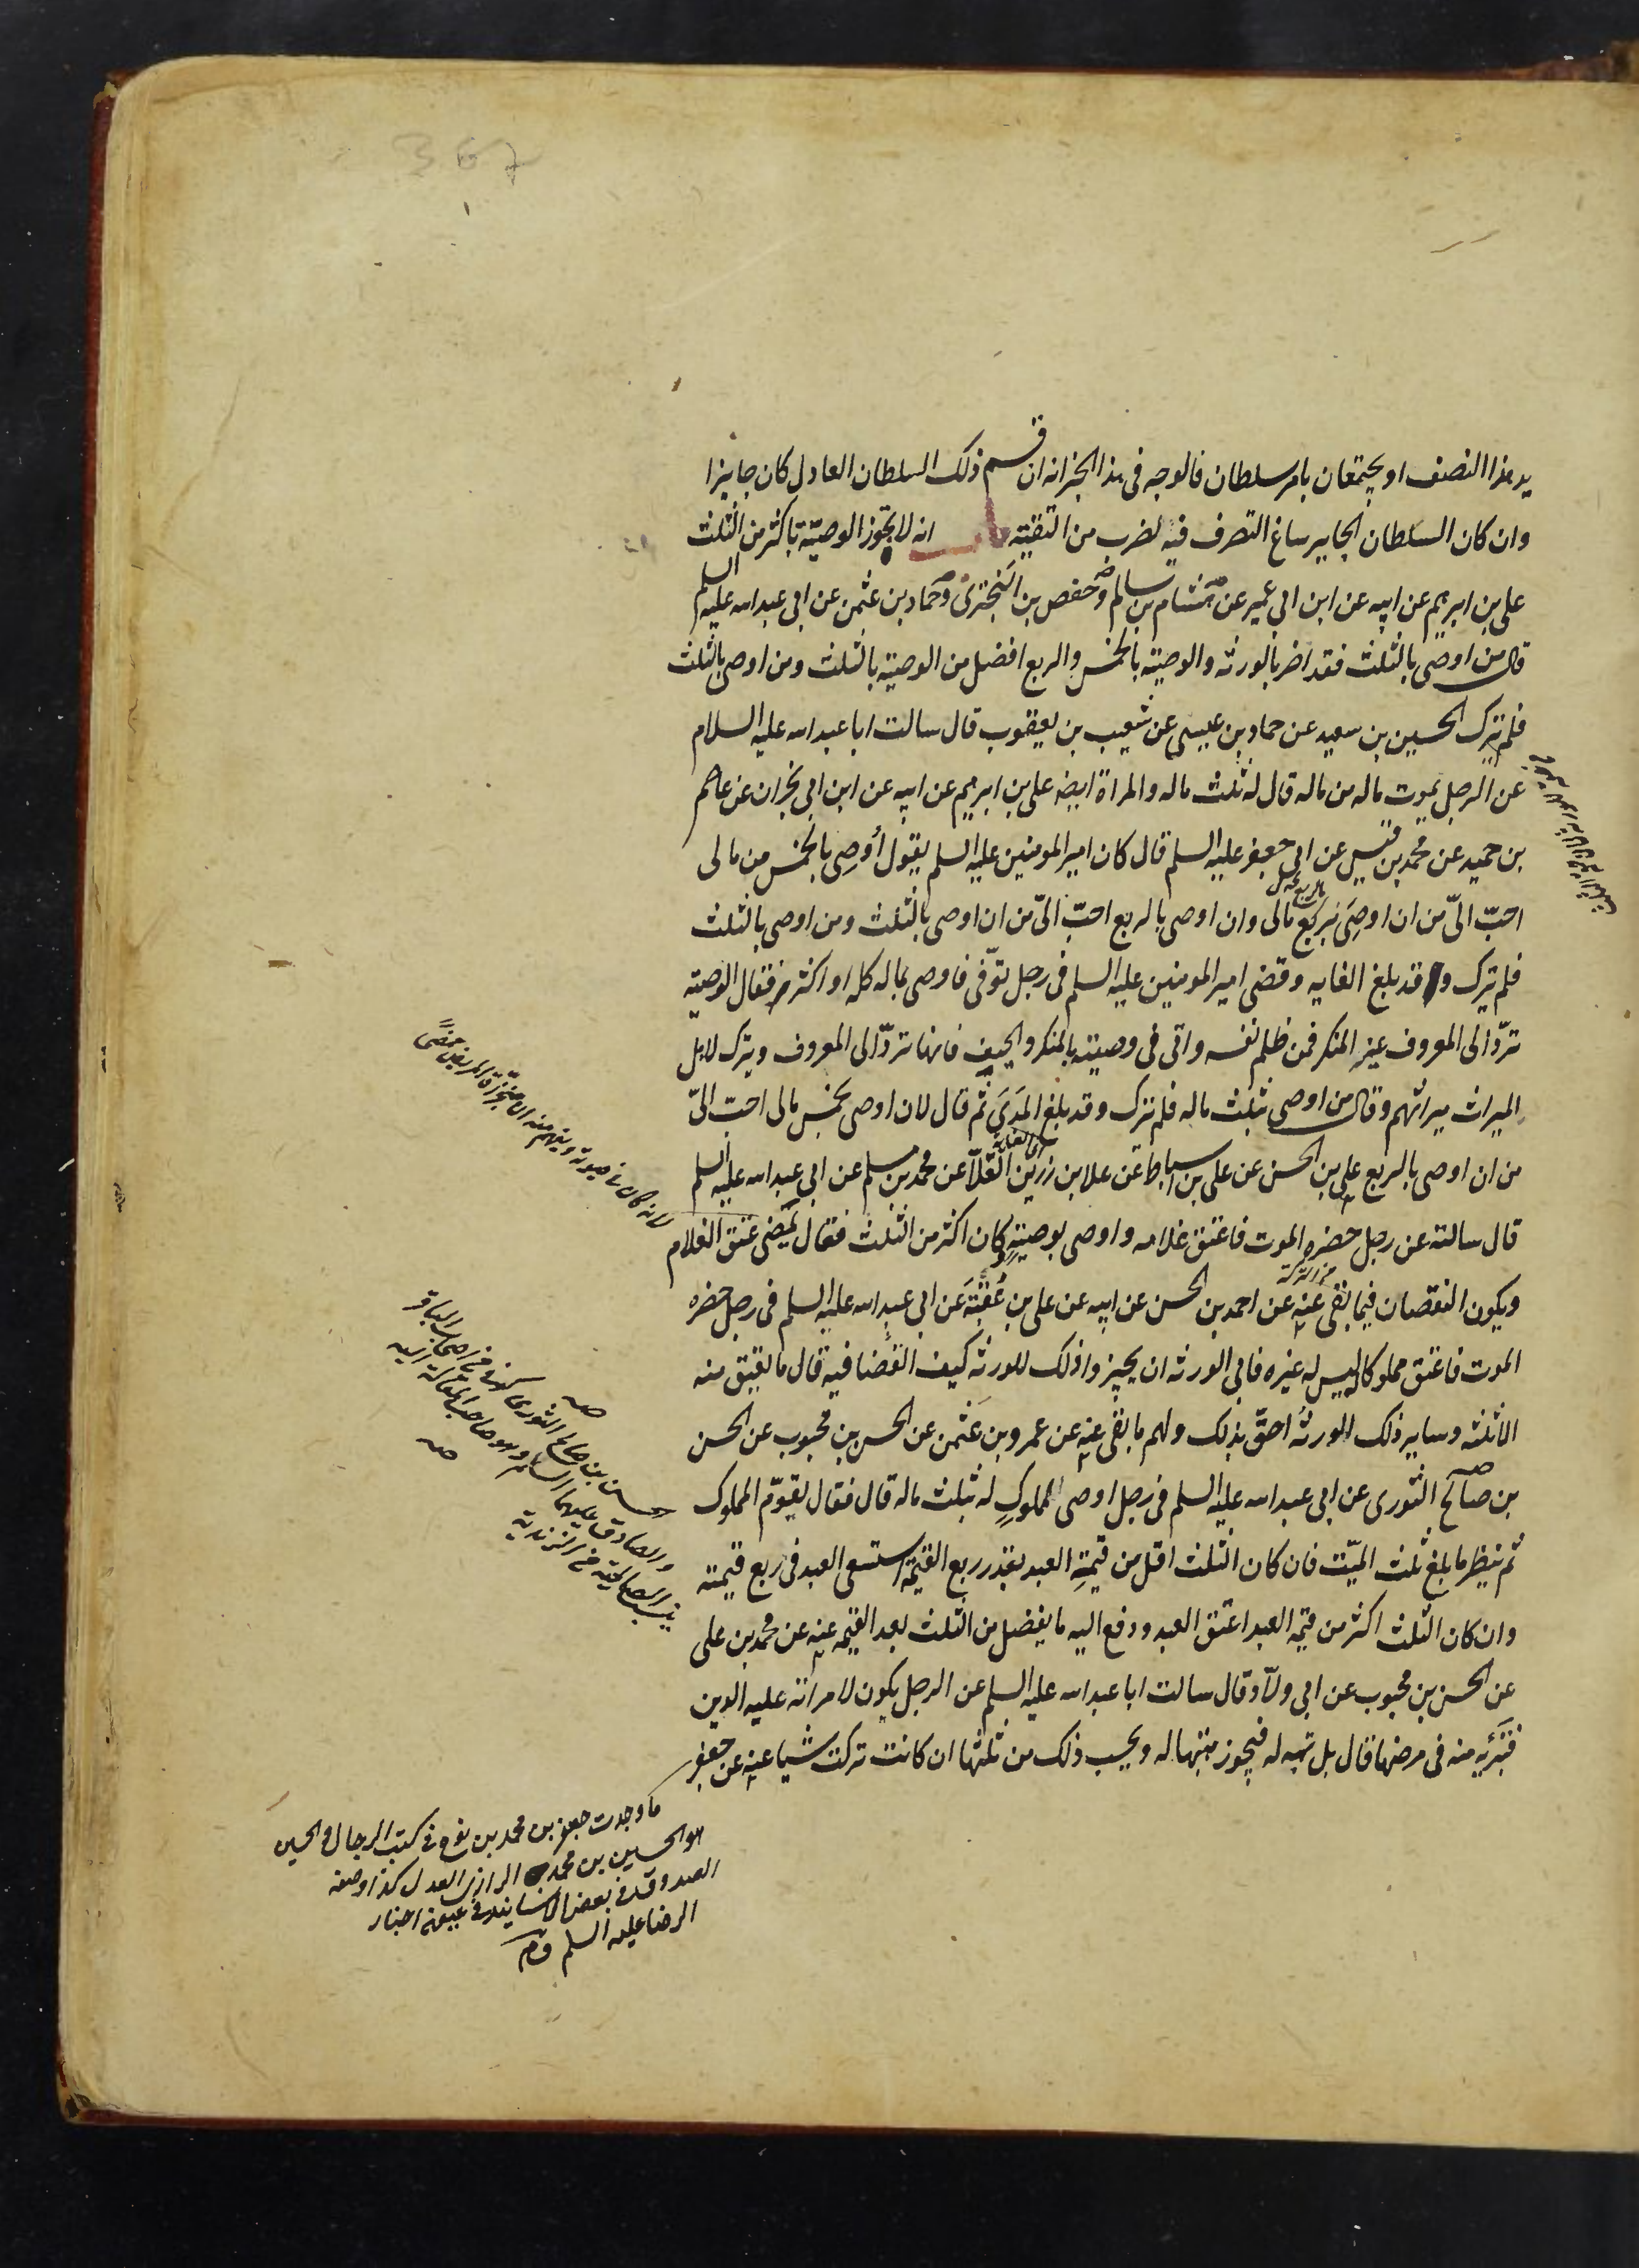 يد هذا النصف او يجتمعان بامر سلطان فالوجه فى هذا الخبر انه ان قسم ذلك السلطان العادل كان جايزا
وان كان السلطان الجاير ساغ التصرف فيه لضرب من التقية باب انه لا تجوز الوصية باكثر من الثلث
على بن ابرهيم عن ابيه عن ابن ابى عمير عن هشام بن سالم وحفص بن البخترى وحماد بن عثمن عن ابى عبد الله عليه السلم
قال من اوصى بالثلث فقد اضر بالورثه والوصية بالخمس والربع افضل من الوصية بالثلث ومن اوصى بالثلث
فلم يترك الحسين بن سعيد عن حماد بن عيسى عن شعيب بن يعقوب قال سالت ابا عبد الله عليه السلام
عن الرجل يموت ماله من ماله قال له ثلث ماله والمراة ايضا على بن ابرهيم عن ابيه عن ابن ابى نجران عن عاصم
بن حميد عن محمد بن قيس عن ابى جعفر عليه السلم قال كان امير المومنين عليه السلم يقول أوصِى بالخمس من مالى
احبّ الىّ من ان اوصِىَ بربع مالى وان اوصى بالربع احبّ الىّ من ان اوصى بالثلث ومن اوصى بالثلث
بالربع
فلم يترك و قد بلغ الغايه وقضى امير المومنين عليه السلم فى رجل توّفى فاوصى بماله كله او اكثره فقال الوصية
تردّ الى المعروف غير المنكر فمن ظلم نفسه واتى فى وصيته بالمنكر والحيف فانها تردّ الى المعروف ويترك لاهل
الميراث ميراثهم وقال من اوصى بثلث ماله فلم يترك وقد بلغ المَدَىَ ثم قال لان اوصى بخمس مالى احبّ الىّ
من ان اوصى بالربع على بن الحسن عن على بن اسباط عن علا بن رزين القلّا عن محمد بن مسلم عن ابى عبد الله عليه السلم
قال سالته عن رجل حضره الموت فاعتق غلامه واوصى بوصيةٍ وكان اكثر من الثلث فقال يُمضى عتق الغلام
ويكون النقصان فيما بقى عنه عن احمد بن الحسن عن ابيه عن على بن عُقبَة عن ابى عبد الله عليه السلم فى رجل حضره
الموت فاعتق مملوكا ليس له غيره فابى الورثه ان يجيزوا ذلك للورثة كيف القضا فيه قال ما يعتق منه
الا ثلثه وساير ذلك الورثهُ احقّ بذلك ولهم ما بقى عنه عن عمرو بن عثمن عن الحسن بن محبوب عن الحسن
بن صالح الثورى عن ابى عبد الله عليه السلم فى رجل اوصى لمملوكٍ له بثلث ماله قال فقال يقوّم المملوك
ثم ينظر ما بلغ ثلث الميّت فان كان الثلث اقل من قيمةِ العبد بقدر ربع القيمة استسعى العبد فى ربع قيمته
وان كان الثلث اكثر من قيمة العبد اعتق العبد ودفع اليه ما يفضل من الثلث بعد القيمه عنه عن محمد بن على
عن الحسن بن محبوب عن ابى ولّاد قال سالت ابا عبد الله عليه السلم عن الرجل يكون لامراته عليه الدين
فتبرئه منه فى مرضها قال بل تهبه له فيجوز هبتها له ويحسب ذلك من ثلثها ان كانت تركت شيا عنه عن جعفر
حسن بن صالح الثورى كوفى من اصحاب الباقر
والصادق عليهما السلم وهو صاحب المقالة اليه
ينسب الصالحية من الزيدية
صه
ما وجدت جعفر بن محمد بن نوح فى كتب الرجال والحسين
هو الحسين بن محمد الرازى العدل كذا وصفه
الصدوق فى بعض الاسانيد فى عيون اخبار
الرضا عليه السلم